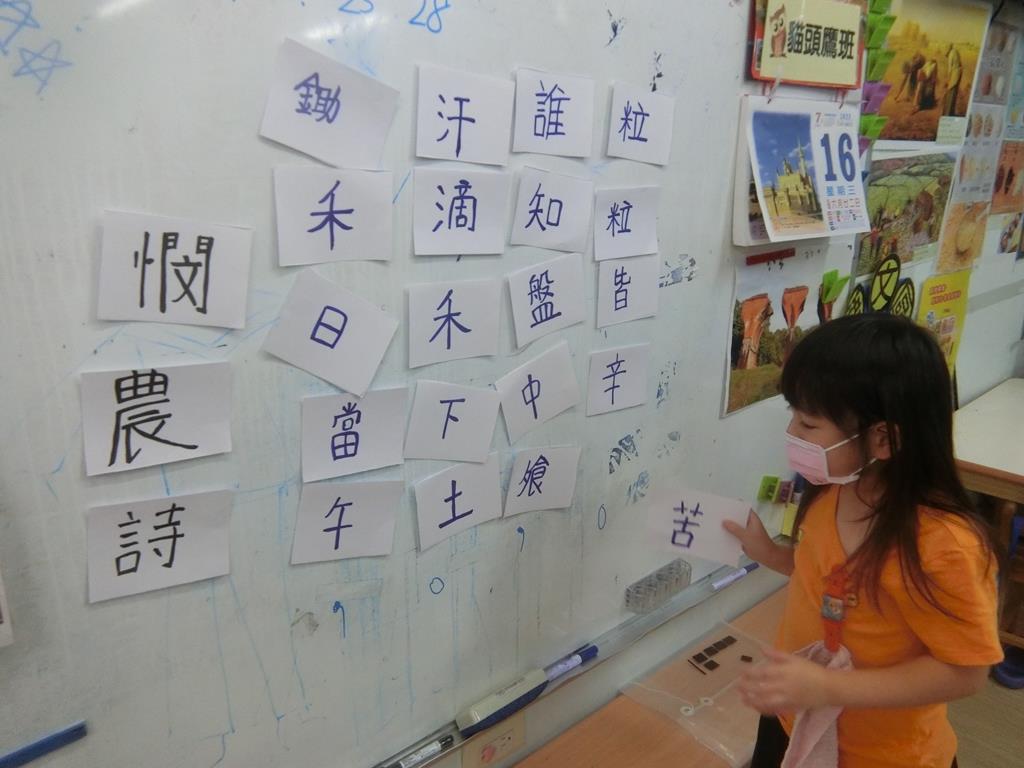 28
憫農詩
鋤禾日當午
汗滴禾下土
誰知盤中飱
粒粒皆辛
苦
貓頭鷹班
7
2025
16
星期三
六月廿二日